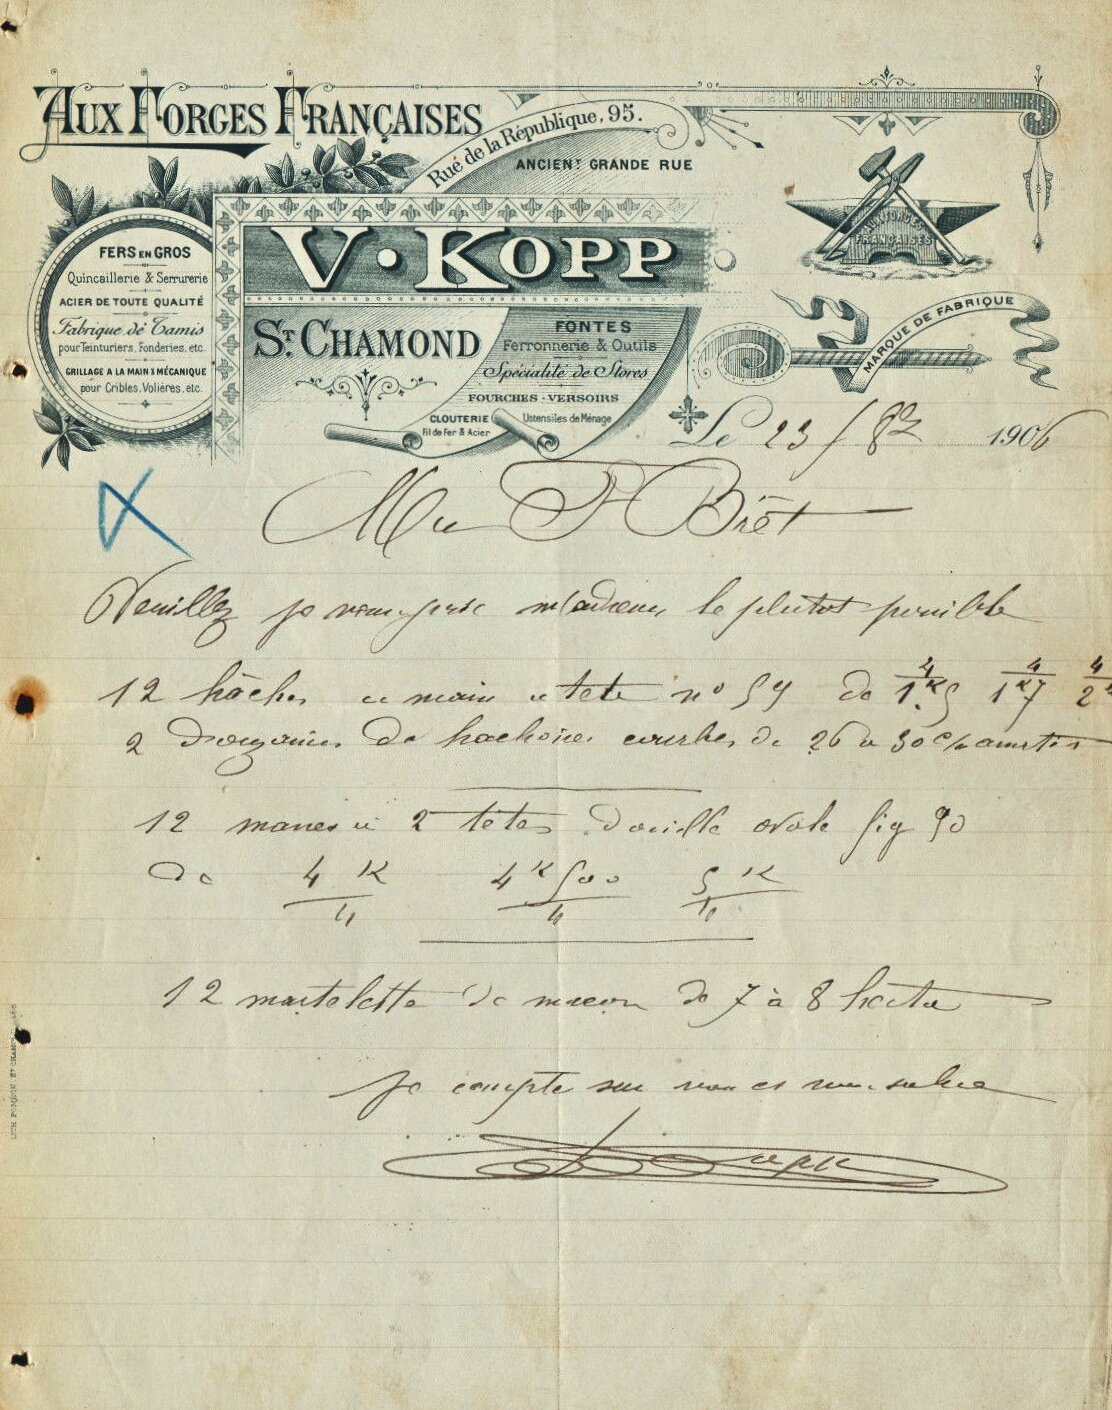 AUX FORGES FRANÇAISES
Rue de la République, 95.
ANCIENT GRANDE RUE
AUX FORGES
FRANÇAISES
V. KOPP
FERS EN GROS
Quincaillerie & Serrurerie
ACIER DE TOUTE QUALITÉ
Fabrique de Tamis
pour Teinturiers, Fonderies, etc.
GRILLAGE A LA MAIN & MÉCANIQUE
pour Cribles, Volières, etc.
ST. CHAMOND
FONTES
Ferronnerie & Outils
Spécialité de Stores
FOURCHES - VERSOIRS
CLOUTERIE
Fil de Fer & Acier
Ustensiles de Ménage
MARQUE DE FABRIQUE
Le 23 / 8bre 1906
F Brêt
Veuillez je vous prie m'adresser le plutot possible
12 hâches a main a tete n° 54 de 4/1K5 4/1K7 4/2K
2 Douzaines de hachoires courbes de 26 a 30 c/m
12 masses a 2 têtes Douille ovale fig 90
De 4 K/4 4 K 500/4 5 K/4
12 martelette de macon de 7 à 8 hecto
Je compte sur vous et vous salue
Kopp